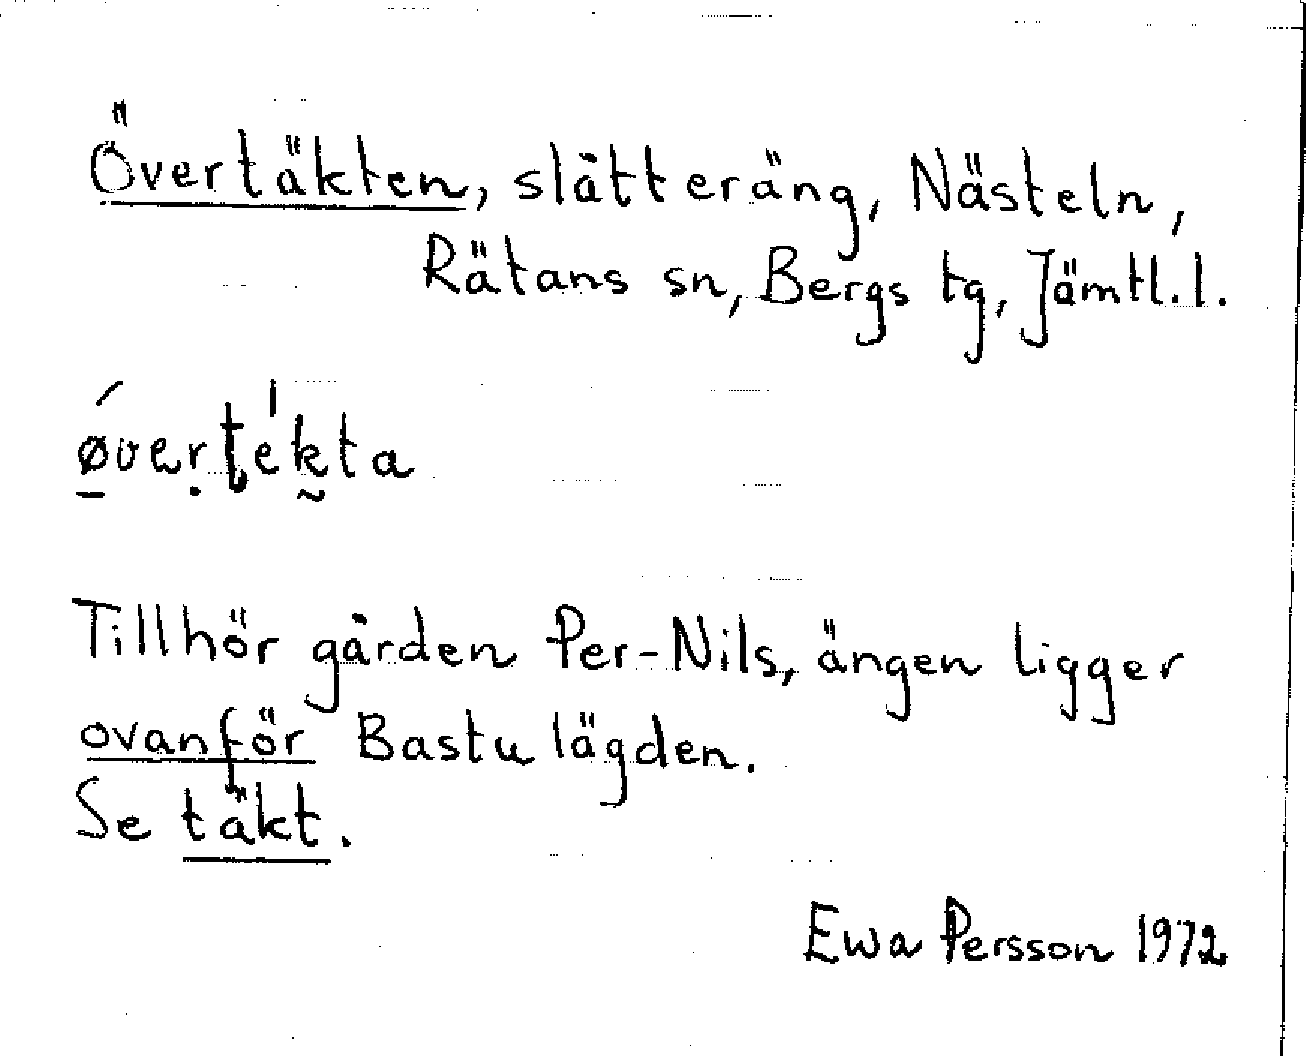 Övertäkten, slåtteräng, Nästeln,
Rätans sn, Bergs tg, Jämtl.l.
ǿ̱verṭe̍k̰ta
Tillhör gården Per-Nils, ängen ligger
ovanför Bastulägden.
Se täkt.
Ewa Persson 1972